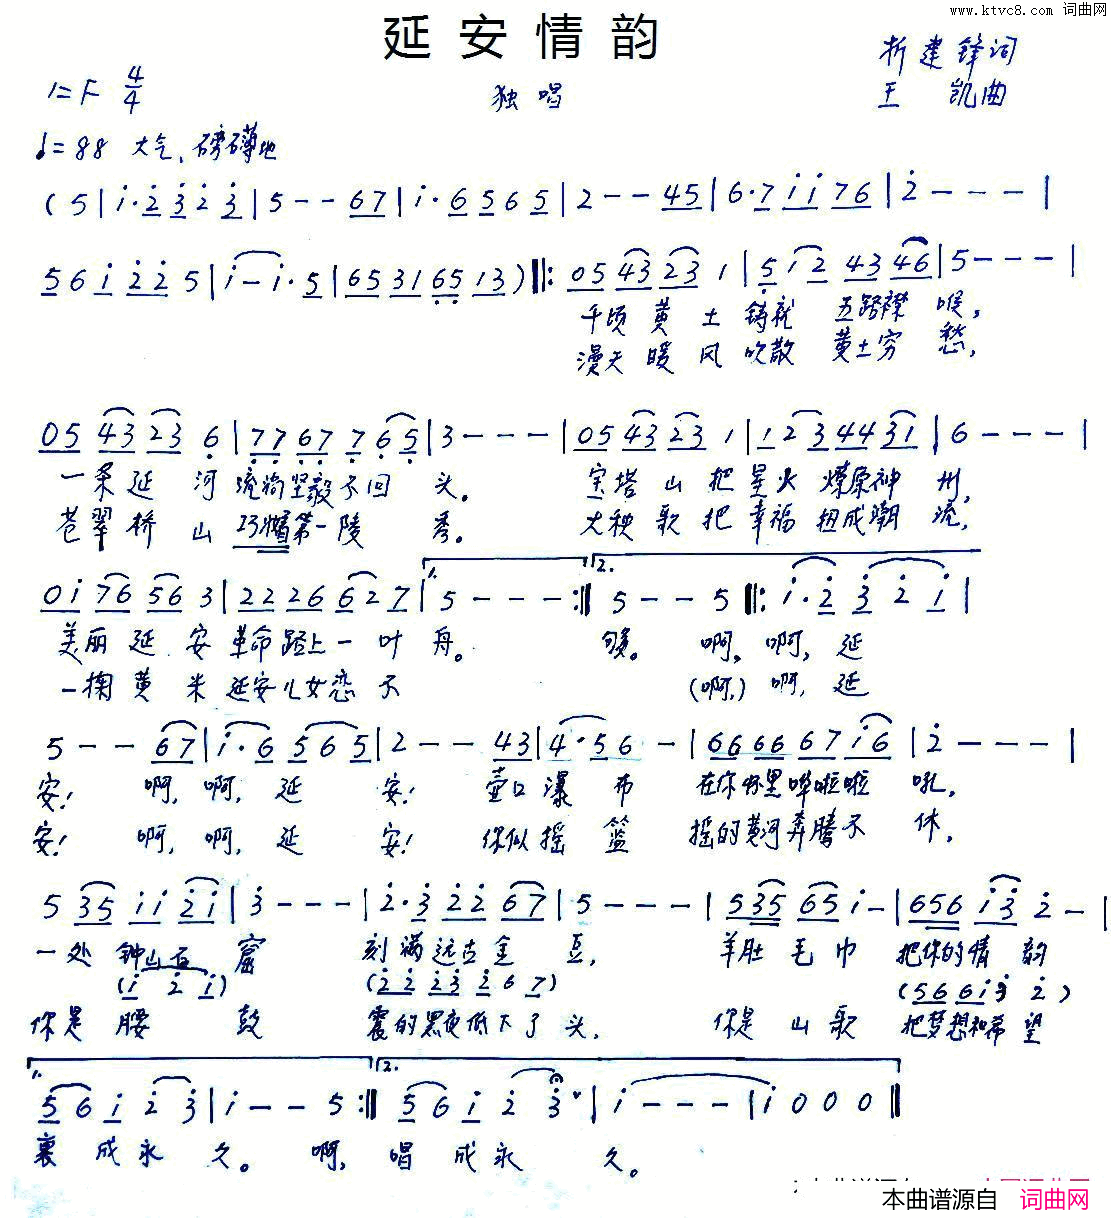 www.ktvc8.com 词曲网
延安情韵
1=F 4/4
独唱
折建锋词
王 凯曲
♩=88 大气、磅礴地
(5|i·2 3 2 3|5--67|i·6 5 6 5|2--45|6·7 i i 7 6|2---|
5 6 i 2 2 5|i-i·5|6531 65 13)‖:05 43 23 1|5 i 2 43 46|5---|
千顷 黄 土 铸就 五 喉,
漫天 暖 风 吹散 黄土穷 愁,
05 43 23 6|77 67 7 6 5|3---|05 43 23 1|1 2 3 44 31|6---|
一条 延 河 流淌坚毅不回 头。 宝塔 山 把 星火 燎原神 州,
苍翠 桥 山 第一陵 秀。 大秧 歌 把 幸福 扭成潮 流,
0i 76 56 3|22 26 6 2 7|5---:‖5--5‖:i·2 3 2 i|
1. 2.
美丽 延 安 革命路上一 叶 舟。 够。 啊, 啊, 延
一掬 黄 米 延安儿女恋 不 (啊,) 啊, 延
5--67|i·6 5 6 5|2--43|4·5 6-|66 66 67 i6|2---|
安! 啊, 啊, 延 安! 壶口 瀑 布 在你怀里哗啦啦 吼,
安! 啊, 啊, 延 安! 你似 摇 篮 摇的黄河奔腾不 休,
5 35 i i 2 i|3---|2·3 2 2 6 7|5---|535 65 i-|656 i 3 2-|
一处 钟山石 窟 刻满远古金 豆, 羊肚 毛 巾 把你的情 韵
(i 2 i) (2 2 2 3 2 6 7) (5 6 6 i 3 2)
你是 腰 鼓 震的黑夜低下了 头, 你是 山 歌 把梦想和希 望
1. 2.
5 6 i 2 3|i--5:‖5 6 i 2 3|i---|i 0 0 0‖
裹 成 永 久。 啊, 唱 成 永 久。
本曲谱源自 词曲网